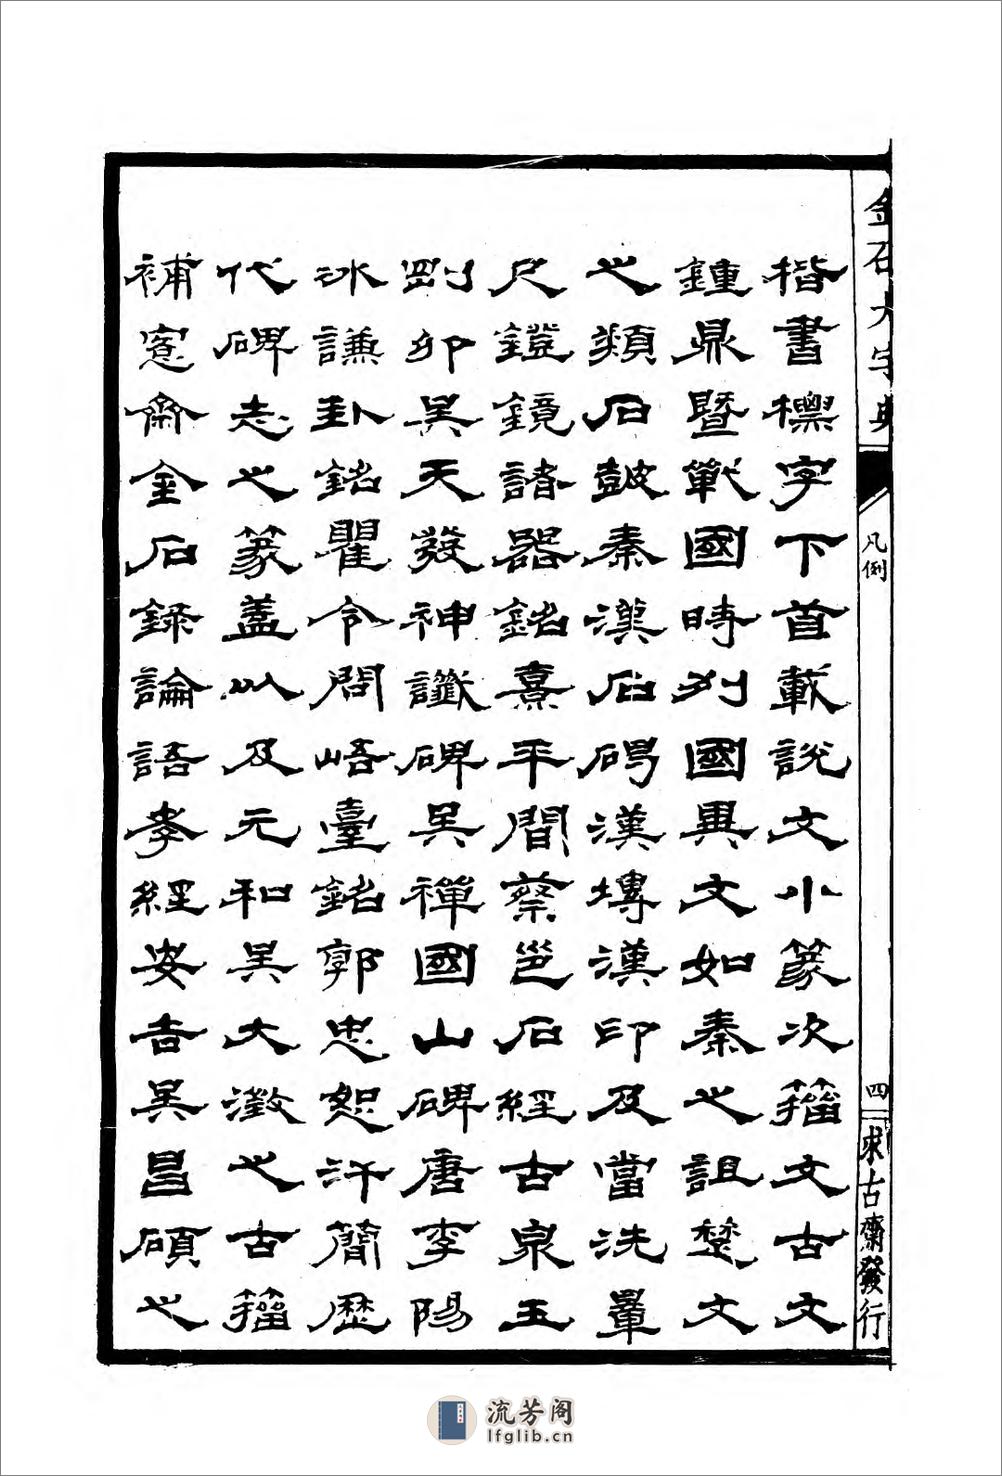 金石大字典
凡例
四
求古齋發行
楷書標字下首載說文小篆次籀文古文
鍾鼎暨戰國時列國異文如秦之詛楚文
之類石鼓秦漢石碣漢塼漢印及當洗暈
尺鐙鏡諸器銘熹平間蔡邕石經古泉玉
剛卯吳天發神讖碑吳禪國山碑唐李陽
冰謙卦銘瞿令問峿臺銘郭忠恕汗簡歷
代碑志之篆蓋以及元和吳大澂之古籀
補愙齋金石錄論語孝經安吉吳昌碩之
流芳阁
lfglib.cn